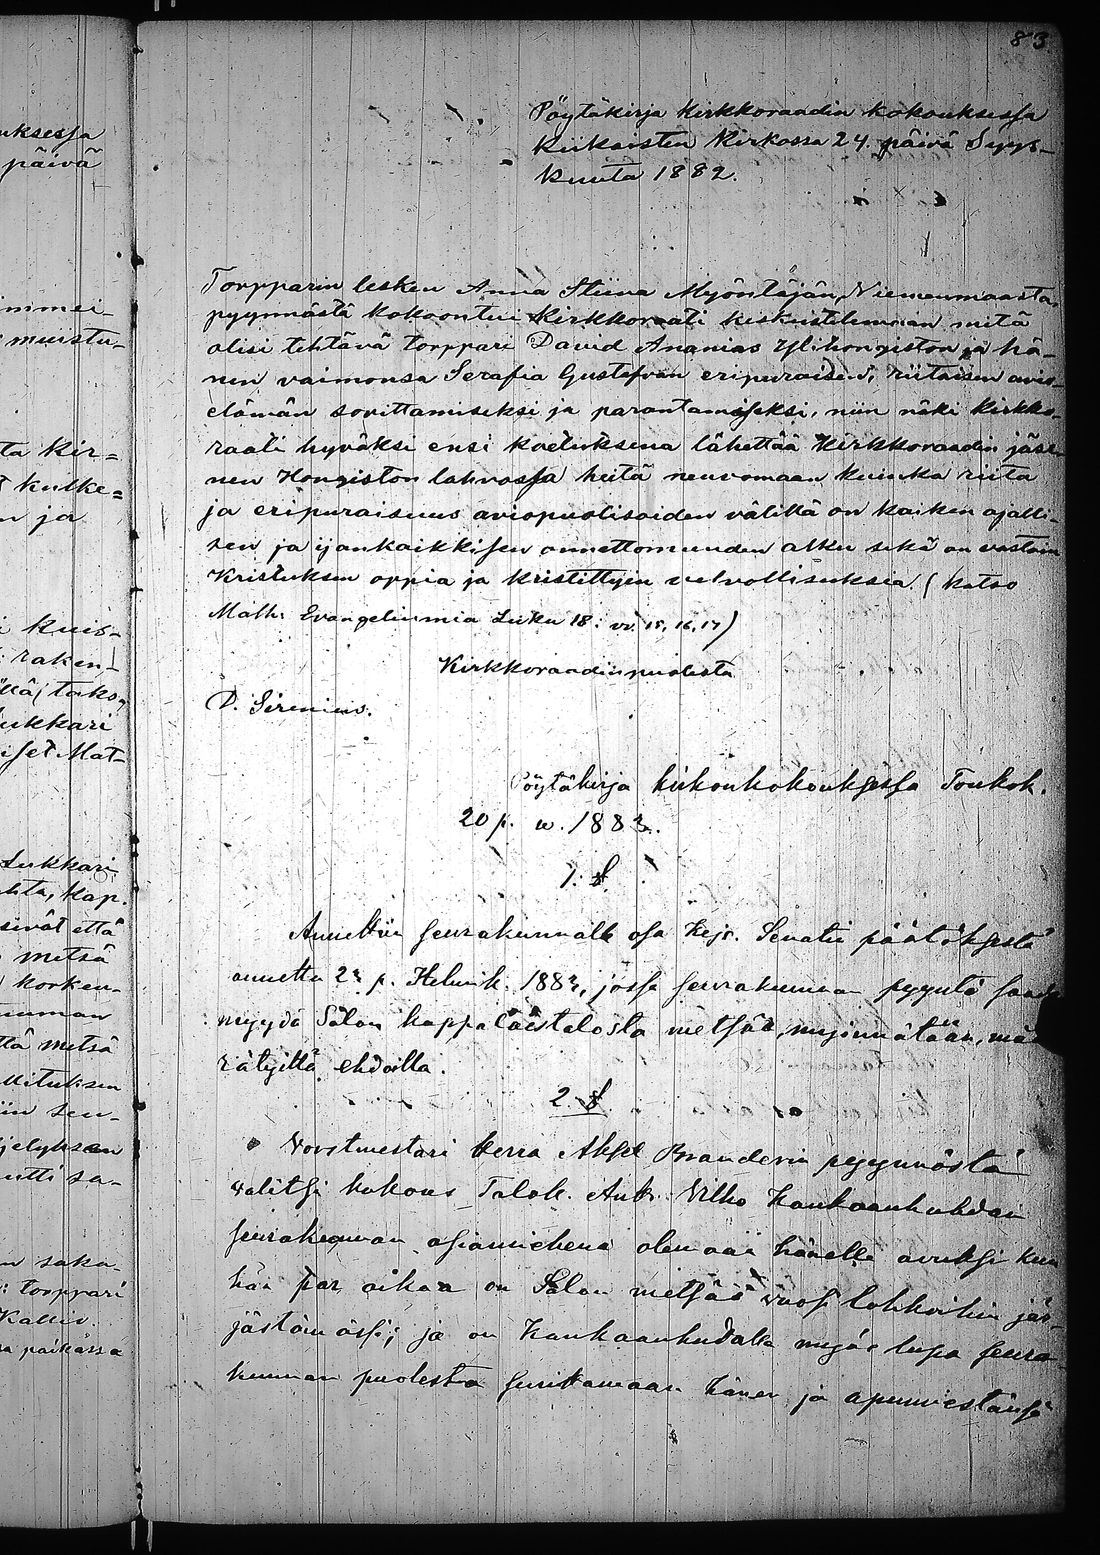 83
Pöytäkirja Kirkkoraadin kokouksessa
Kiikoisten Kirkossa 24. päivä Syys-
kuuta 1882.
Torpparin lesken Anna Stiina Myöntäjän, Niemenmaasta,
pyynnöstä kokoontui Kirkkoraati keskustelemaan mitä
olisi tehtävä torppari David Ananias Ylihongiston ja hä-
nen vaimonsa Serafia Gustafvan eripuraisen, riitaisen avio-
elämän sovittamiseksi ja parantamiseksi, niin näki kirkko-
raati hyväksi ensi koetuksena lähettää Kirkkoraadin jäse-
nen Hongiston lahvossa heitä neuvomaan kuinka riita
ja eripuraisuus aviopuolisoiden välillä on kaiken ajalli-
sen ja ijankaikkisen onnettomuuden alku sekä on vastoin
Kristuksen oppia ja kristittyin velvollisuksia. (katso
Math: Evangeliumia Luku 18: vv. 15, 16, 17)
Kirkkoraadin puolesta
D. Sirenius.
Pöytäkirja kirkonkokouksessa Toukok.
20 p. w. 1883.
1. §.
Annettiin seurakunnalle osa Keis. Senatin päätöksestä
annettu 23 p. Helmik. 1883, jossa seurakunnan pyyntö saada
myydä Salan kappalaistalosta metsää, myönnätään, mää
rätyillä ehdoilla.
2. §
Vorstmestari herra Aksel Branderin pyynnöstä
valitsi kokous Talok. Antt. Vilho Kankaanhuhdan
seurakunnan asiamiehenä olemaan hänelle avuksi kun
hän par aikaa on Salan metsää vuosi lohkoihin jär-
jästämässä; ja on Kankaanhuhdalla myös lupa seura
kunnan puolesta suvittamaan hänen ja apumiestänsä
uksessa
päivä
immei-
muistu-
ta kir=
kulke=
n ja
kuis-
raken-
ukkari
Mat-
Lukkari
hta, kap.
sivät että
metsä
korken-
tä metsä
llituksen
iin seu-
jelyksen
utti sa-
n saka-
torppari
Kallio.
paikassa